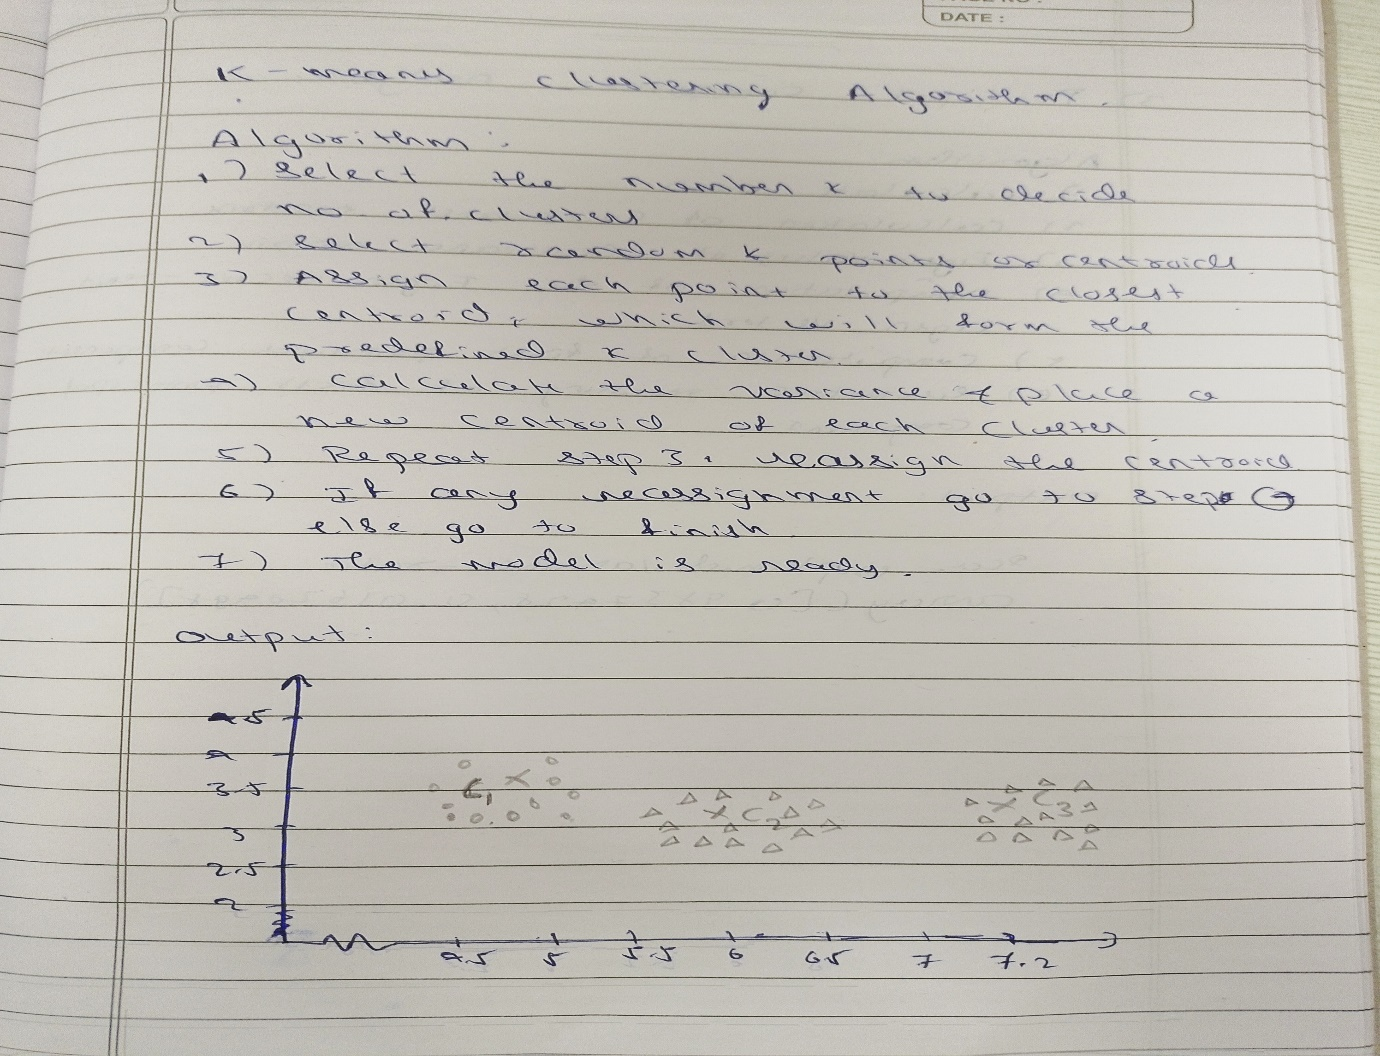 DATE :
K - means clustering Algorithm.
Algorithm :
1) select the number K to decide
no of clusters
2) select random K points or centroids
3) Assign each point to the closest
centroid, which will form the
predefined K cluster.
4) calculate the variance & place a
new centroid of each cluster.
5) Repeat step 3, reassign the centroid
6) If any reassignment go to step
else go to finish
7) The model is ready.
output :
4.5
4
3.5
3
2.5
2
C1
C2
C3
4.5 5 5.5 6 6.5 7 7.2